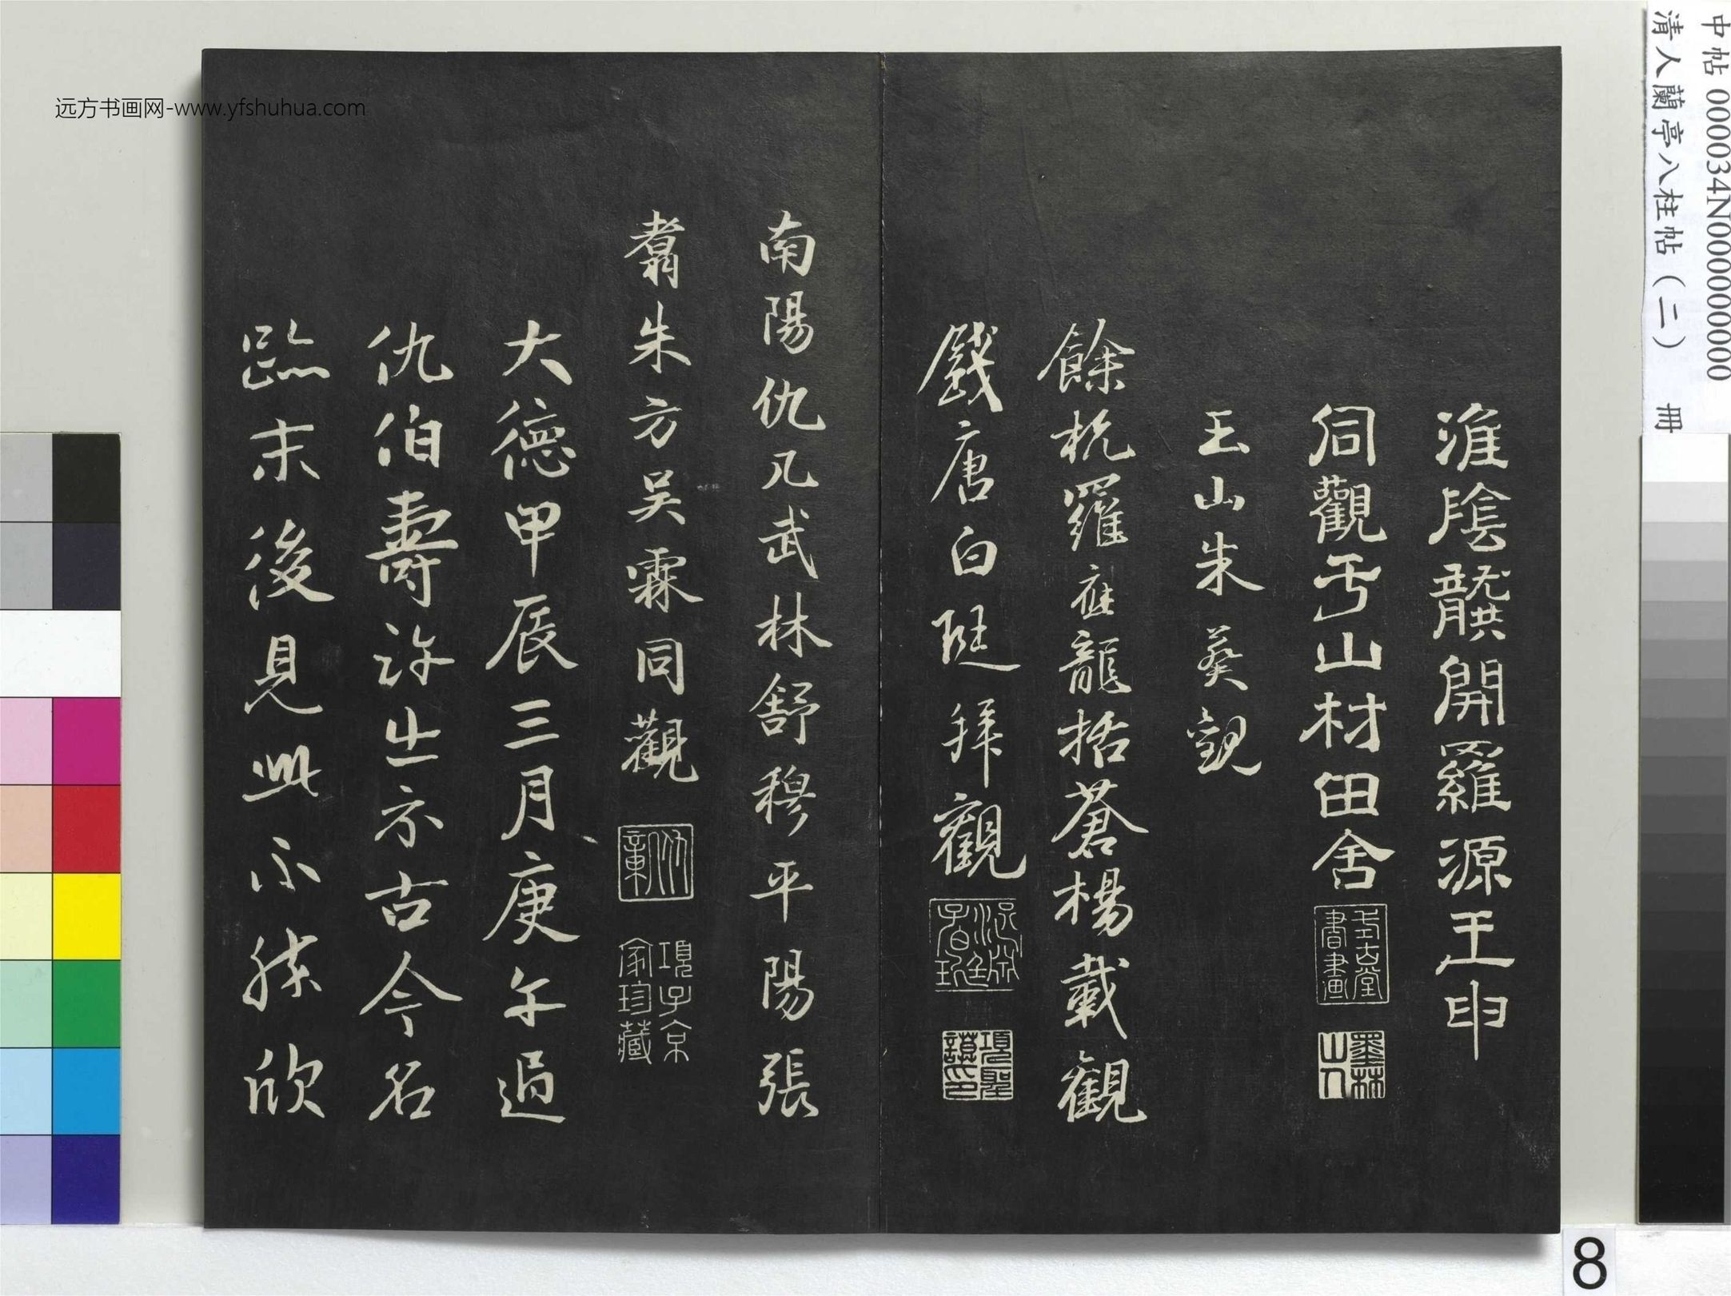 淮陰龔開羅源王申
同觀于山材田舍
玉山朱葵觀
餘杭羅應龍括蒼楊載觀
錢唐白珽拜觀
南陽仇几武林舒穆平陽張
翥朱方吳霖同觀
大德甲辰三月庚午過
仇伯壽許出示古今名
跡末後見此不勝欣
式古堂書畫
墨林山人
項子京家珍藏
远方书画网-www.yfshuhua.com
中帖 000034N000000000
清人蘭亭八柱帖（二） 冊
8